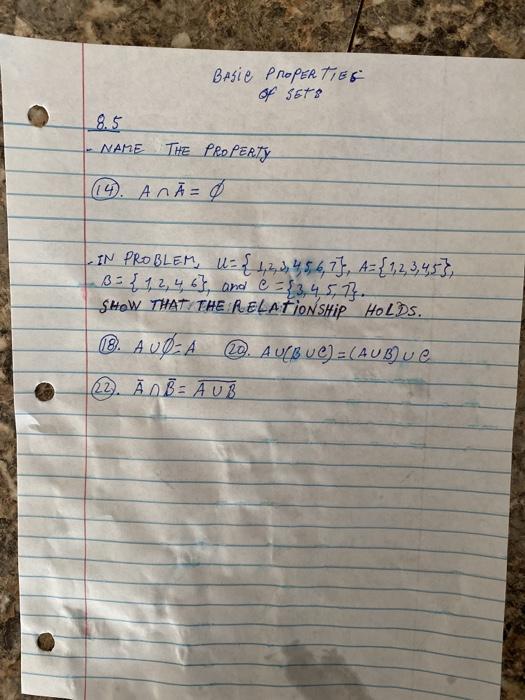 BASIC PROPERTIES
OF SETS
8.5
- NAME THE PROPERTY
(14). A ∩ Ā = ∅
- IN PROBLEM, U = {1,2,3,4,5,6,7}, A = {1,2,3,4,5},
B = {1,2,4,6}, and C = {3,4,5,7}.
SHOW THAT THE RELATIONSHIP HOLDS.
(18). A ∪ ∅ = A (20). A ∪ (B ∪ C) = (A ∪ B) ∪ C
(22). Ā ∩ B̄ = A̅ ̅∪̅ ̅B̅